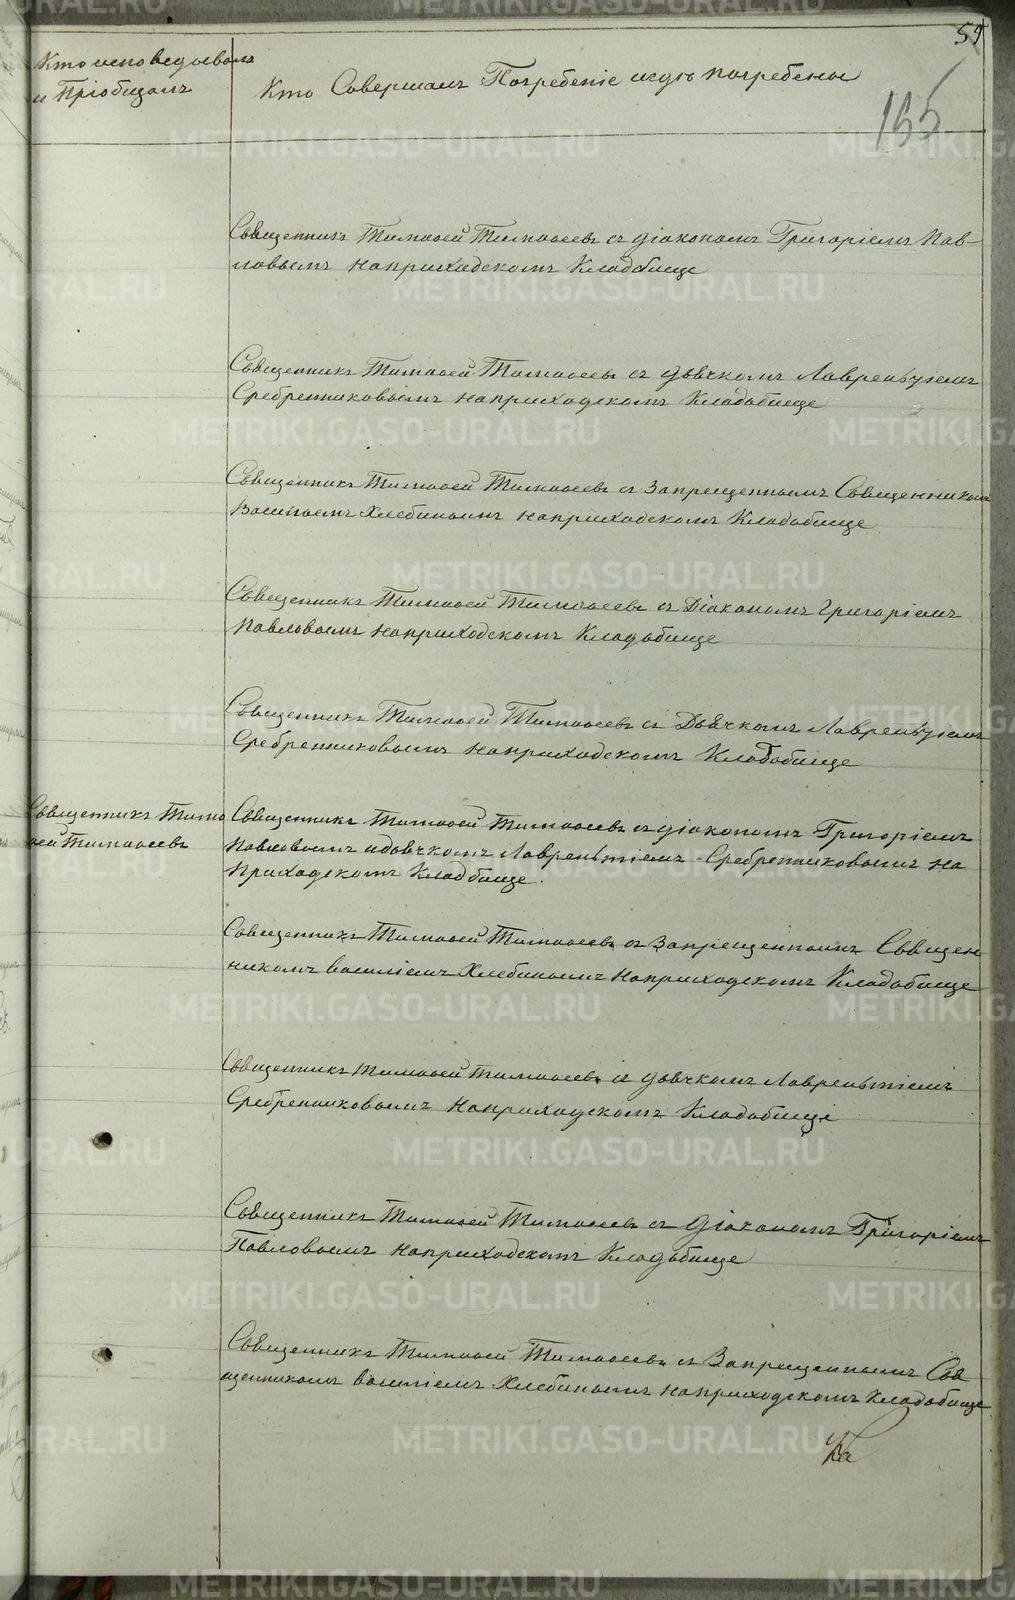 59
155
Кто исповедовалъ
и Пріобщалъ
Кто Совершалъ Погребеніе игдѣ погребены
Священникъ Тимофей Тимофеевъ съ діакономъ Григоріемъ Пав-
ловымъ наприходскомъ Кладбище
Священникъ Тимофей Тимофеевъ съ дьячкомъ Лаврентіемъ
Сребренниковымъ наприходскомъ Кладбище
Священникъ Тимофей Тимофеевъ съ Запрещеннымъ Священникомъ
Василіемъ Хлебинымъ наприходскомъ Кладбище
Священникъ Тимофей Тимофеевъ съ Діакономъ Григоріемъ
Павловымъ наприходскомъ Кладьбище
Священникъ Тимофей Тимофеевъ съ Дьячкомъ Лаврентіемъ
Сребренниковымъ наприходскомъ Кладбище
Священникъ Тимо
фей Тимофеевъ
Священникъ Тимофей Тимофеевъ съ діакономъ Григоріемъ
Павловымъ идьячкомъ Лаврентіемъ Сребренниковымъ на
Приходскомъ Кладбище.
Священникъ Тимофей Тимофеевъ съ Запрещеннымъ Священ
никомъ василіемъ Хлебинымъ наприходскомъ Кладбище
Священникъ тимофей тимофеевъ съ дьячкомъ Лаврентіемъ
Сребренниковымъ наприходскомъ Кладбище
Священникъ Тимофей Тимофеевъ съ діакономъ Григоріемъ
Павловымъ наприходскомъ Кладьбище
Священникъ Тимофей Тимофеевъ съ Запрещеннымъ Свя
щенникомъ василіемъ Хлебинымъ наприходскомъ Кладбище
METRIKI.GASO-URAL.RU